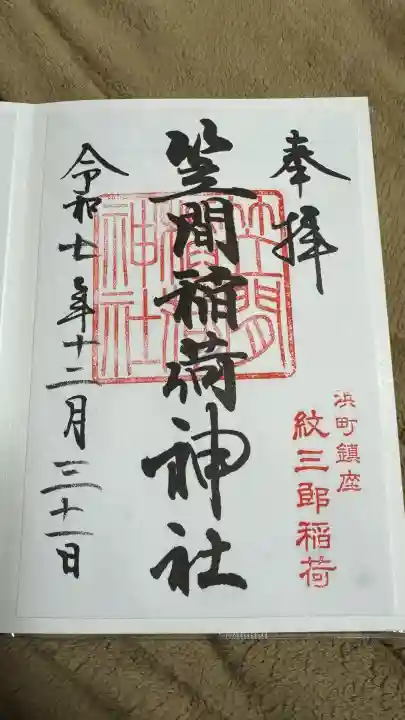 奉拝
浜町鎮座
紋三郎稲荷
笠間稲荷神社
笠間
稲荷
神社
令和七年十二月三十一日